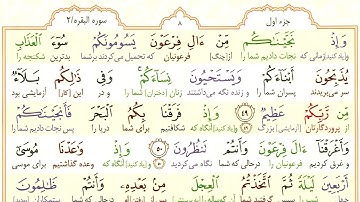 جزء اول ۸ سوره البقره/۲
وَإِذْ نَجَّيْنَٰكُم مِّنْ ءَالِ فِرْعَوْنَ يَسُومُونَكُمْ سُوٓءَ ٱلْعَذَابِ
و [یاد کنید] زمانی که نجات دادیم شما را از [چنگ] فرعونیان که تحمیل می کردند برشما بدترین شکنجه را
يُذَبِّحُونَ أَبْنَآءَكُمْ وَيَسْتَحْيُونَ نِسَآءَكُمْ وَفِى ذَٰلِكُم بَلَآءٌ
سر می بریدند پسران شما را و زنده نگه می داشتند زنان (دختران) شما را و در این [کار] آزمایشی بود
مِّن رَّبِّكُمْ عَظِيمٌ ﴿٤٩﴾ وَإِذْ فَرَقْنَا بِكُمُ ٱلْبَحْرَ فَأَنجَيْنَٰكُمْ
از پروردگارتان [آزمایشی] بزرگ و [یاد کنید] آنگاه که شکافتیم برای شما دریا را پس نجات دادیم شما را
وَأَغْرَقْنَآ ءَالَ فِرْعَوْنَ وَأَنتُمْ تَنظُرُونَ ﴿٥٠﴾ وَإِذْ وَٰعَدْنَا مُوسَىٰٓ
و غرق کردیم فرعونیان را درحالی که شما نگاه می کردید و [یاد کنید] آنگاه که وعده گذاشتیم برای موسی
أَرْبَعِينَ لَيْلَةً ثُمَّ ٱتَّخَذْتُمُ ٱلْعِجْلَ مِنۢ بَعْدِهِۦ وَأَنتُمْ ظَٰلِمُونَ